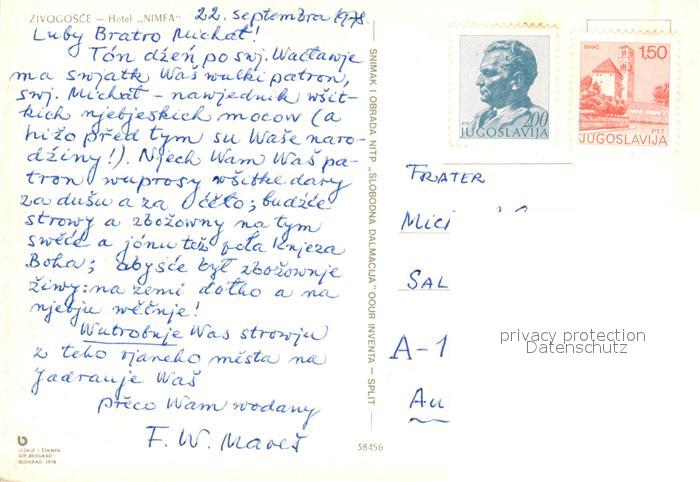 ŽIVOGOŠĆE – Hotel „NIMFA" 22. septembra 1978.
Luby Bratro Michał!
Tón dźeń po swj. Wacławje
ma swjatk Waš wulki patron,
swj. Michał – nawjednik wšit-
kich njebjeskich mocow (a
hižo před tym su Waše naro-
dźiny!). Njech Wam Waš pa-
tron wuprosy wšitke dary
za dušu a za ćěło; budźće
strowy a zbožowny na tym
swěće a jónu tež pola Knjeza
Boha; abysće był zbožownje
žiwy: na zemi dołho a na
njebju wěčnje!
Wutrobnje Was strowju
z teho rjaneho města na
Jadranje Waš
přeco Wam wodany
F. W. Mareš
IZDAJE I ŠTAMPA
GIP „BEOGRAD"
BEOGRAD, 1978
38456
SNIMAK I OBRADA NITP „SLOBODNA DALMACIJA" OOUR INVENTA – SPLIT
2,00
PTT
JUGOSLAVIJA
BIHAĆ
1,50
PTT
JUGOSLAVIJA
FRATER
MICI
SAL
A-1
AU
privacy protection
Datenschutz